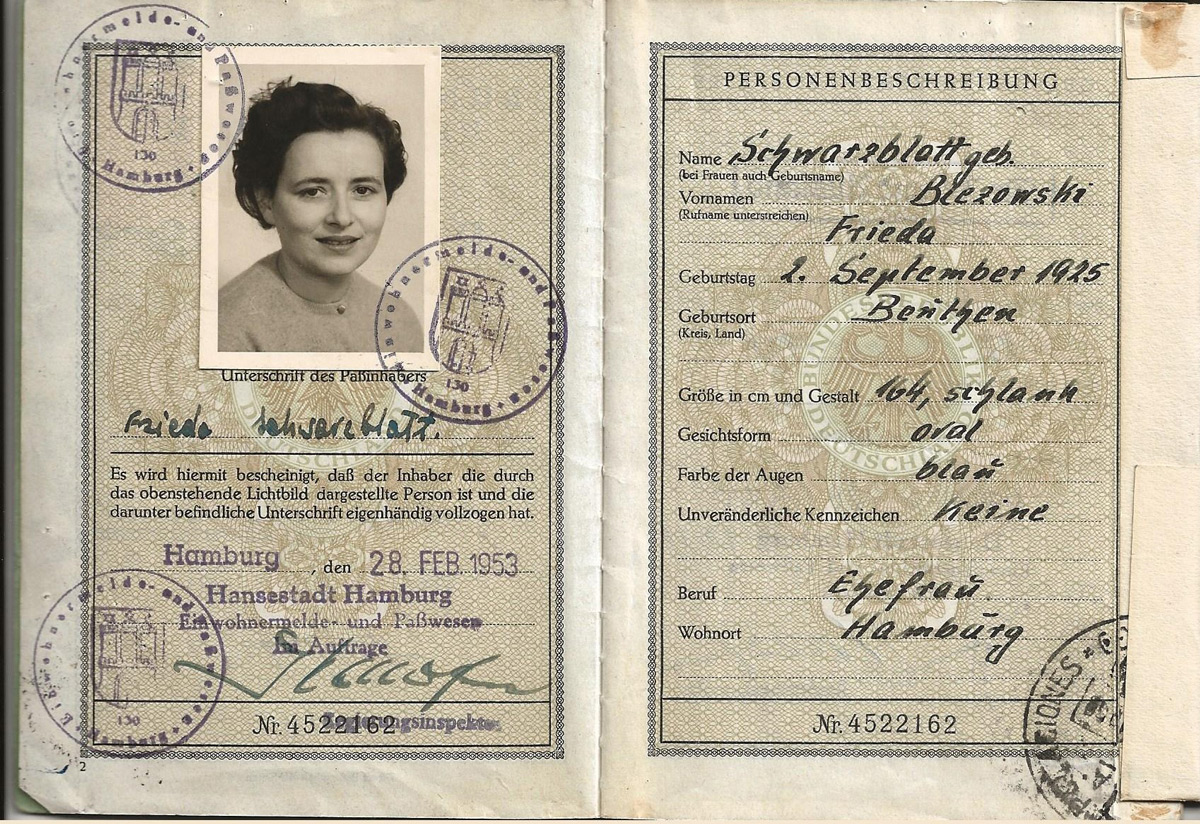 Einwohnermelde- und Paßwesen
130
Hamburg
Einwohnermelde- und Paßwesen
130
Hamburg
Unterschrift des Paßinhabers
Frieda Schwarzblatt.
Es wird hiermit bescheinigt, daß der Inhaber die durch
das obenstehende Lichtbild dargestellte Person ist und die
darunter befindliche Unterschrift eigenhändig vollzogen hat.
Hamburg, den 28. FEB. 1953
Hansestadt Hamburg
Einwohnermelde- und Paßwesen
Im Auftrage
Einwohnermelde- und Paßwesen
130
Hamburg
Nr. 4522162
2
PERSONENBESCHREIBUNG
Name Schwarzblatt geb.
(bei Frauen auch Geburtsname)
Vornamen Blezowski
(Rufname unterstreichen)
Frieda
Geburtstag 2. September 1925
Geburtsort Beuthen
(Kreis, Land)
BUNDESREPUBLIK DEUTSCHLAND
Größe in cm und Gestalt 164, schlank
Gesichtsform oval
Farbe der Augen blau
Unveränderliche Kennzeichen Keine
Beruf Ehefrau.
Wohnort Hamburg
Nr. 4522162